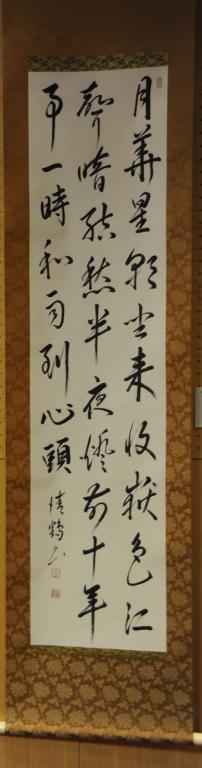 月華星彩坐来收嶽色江
聲暗結愁半夜燈前十年
事一時和雨到心頭